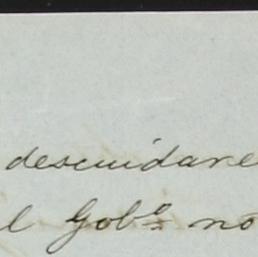 descuidare
l Gobº no